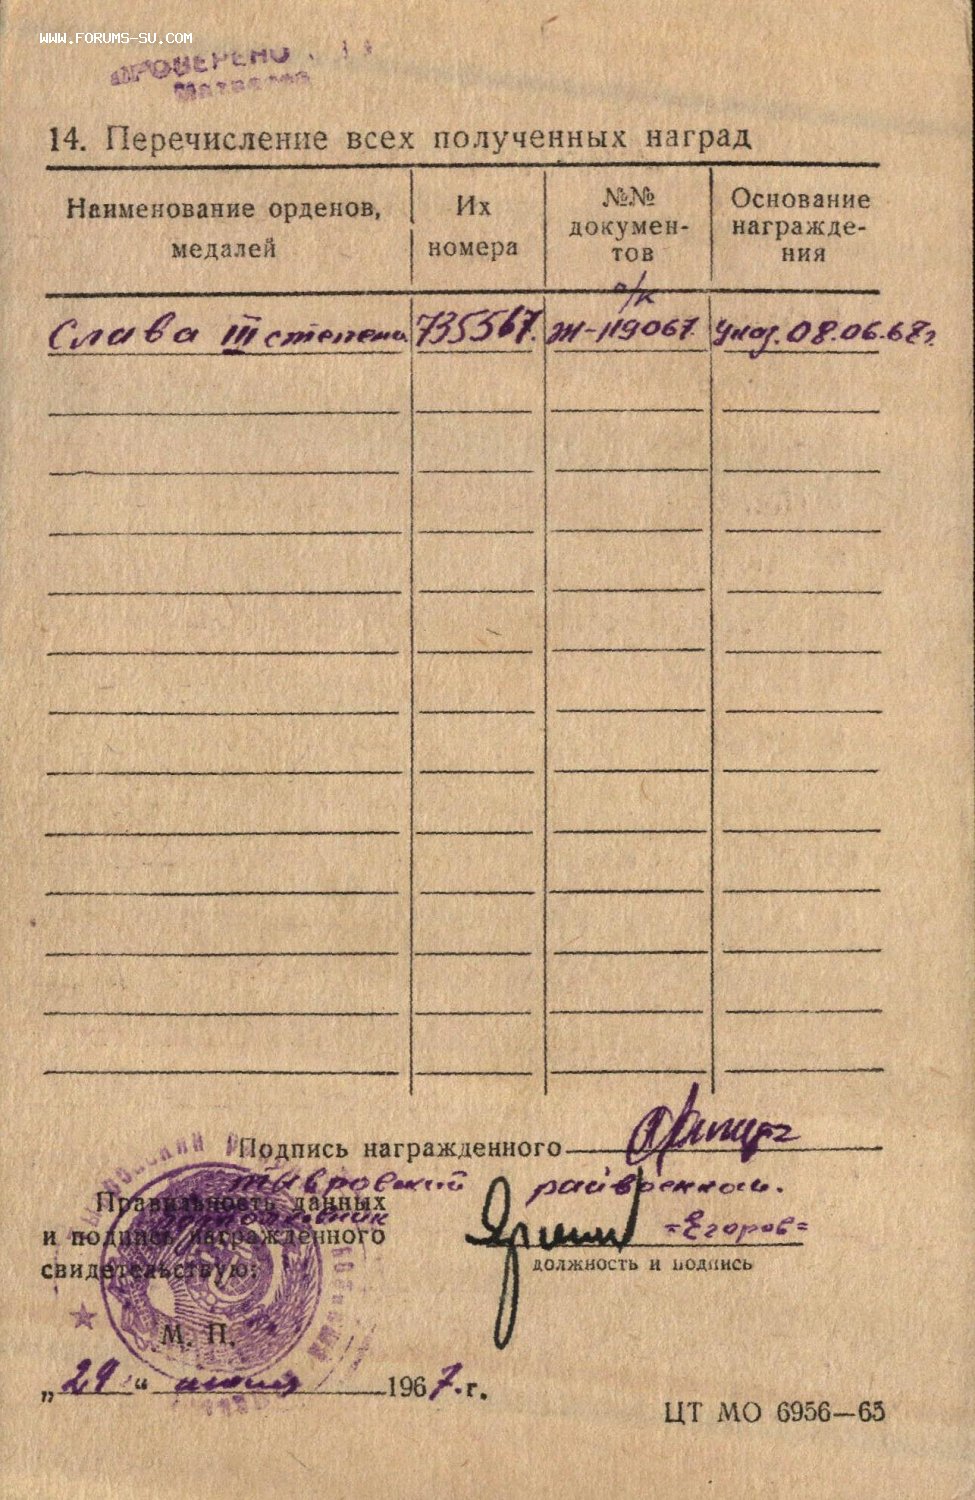 WWW.FORUMS-SU.COM
ПРОВЕРЕНО
14. Перечисление всех полученных наград
Наименование орденов, медалей
Их номера
№№ документов
Основание награждения
о/к
Слава III степени 735567. Ж-119067. Указ. 08.06.68г
Подпись награжденного
райвоенком.
Правильность данных
подполковник
и подпись награжденного
=Егоров=
свидетельствую:
должность и подпись
М. П.
„29“ июня 1967.г.
ЦТ МО 6956—65